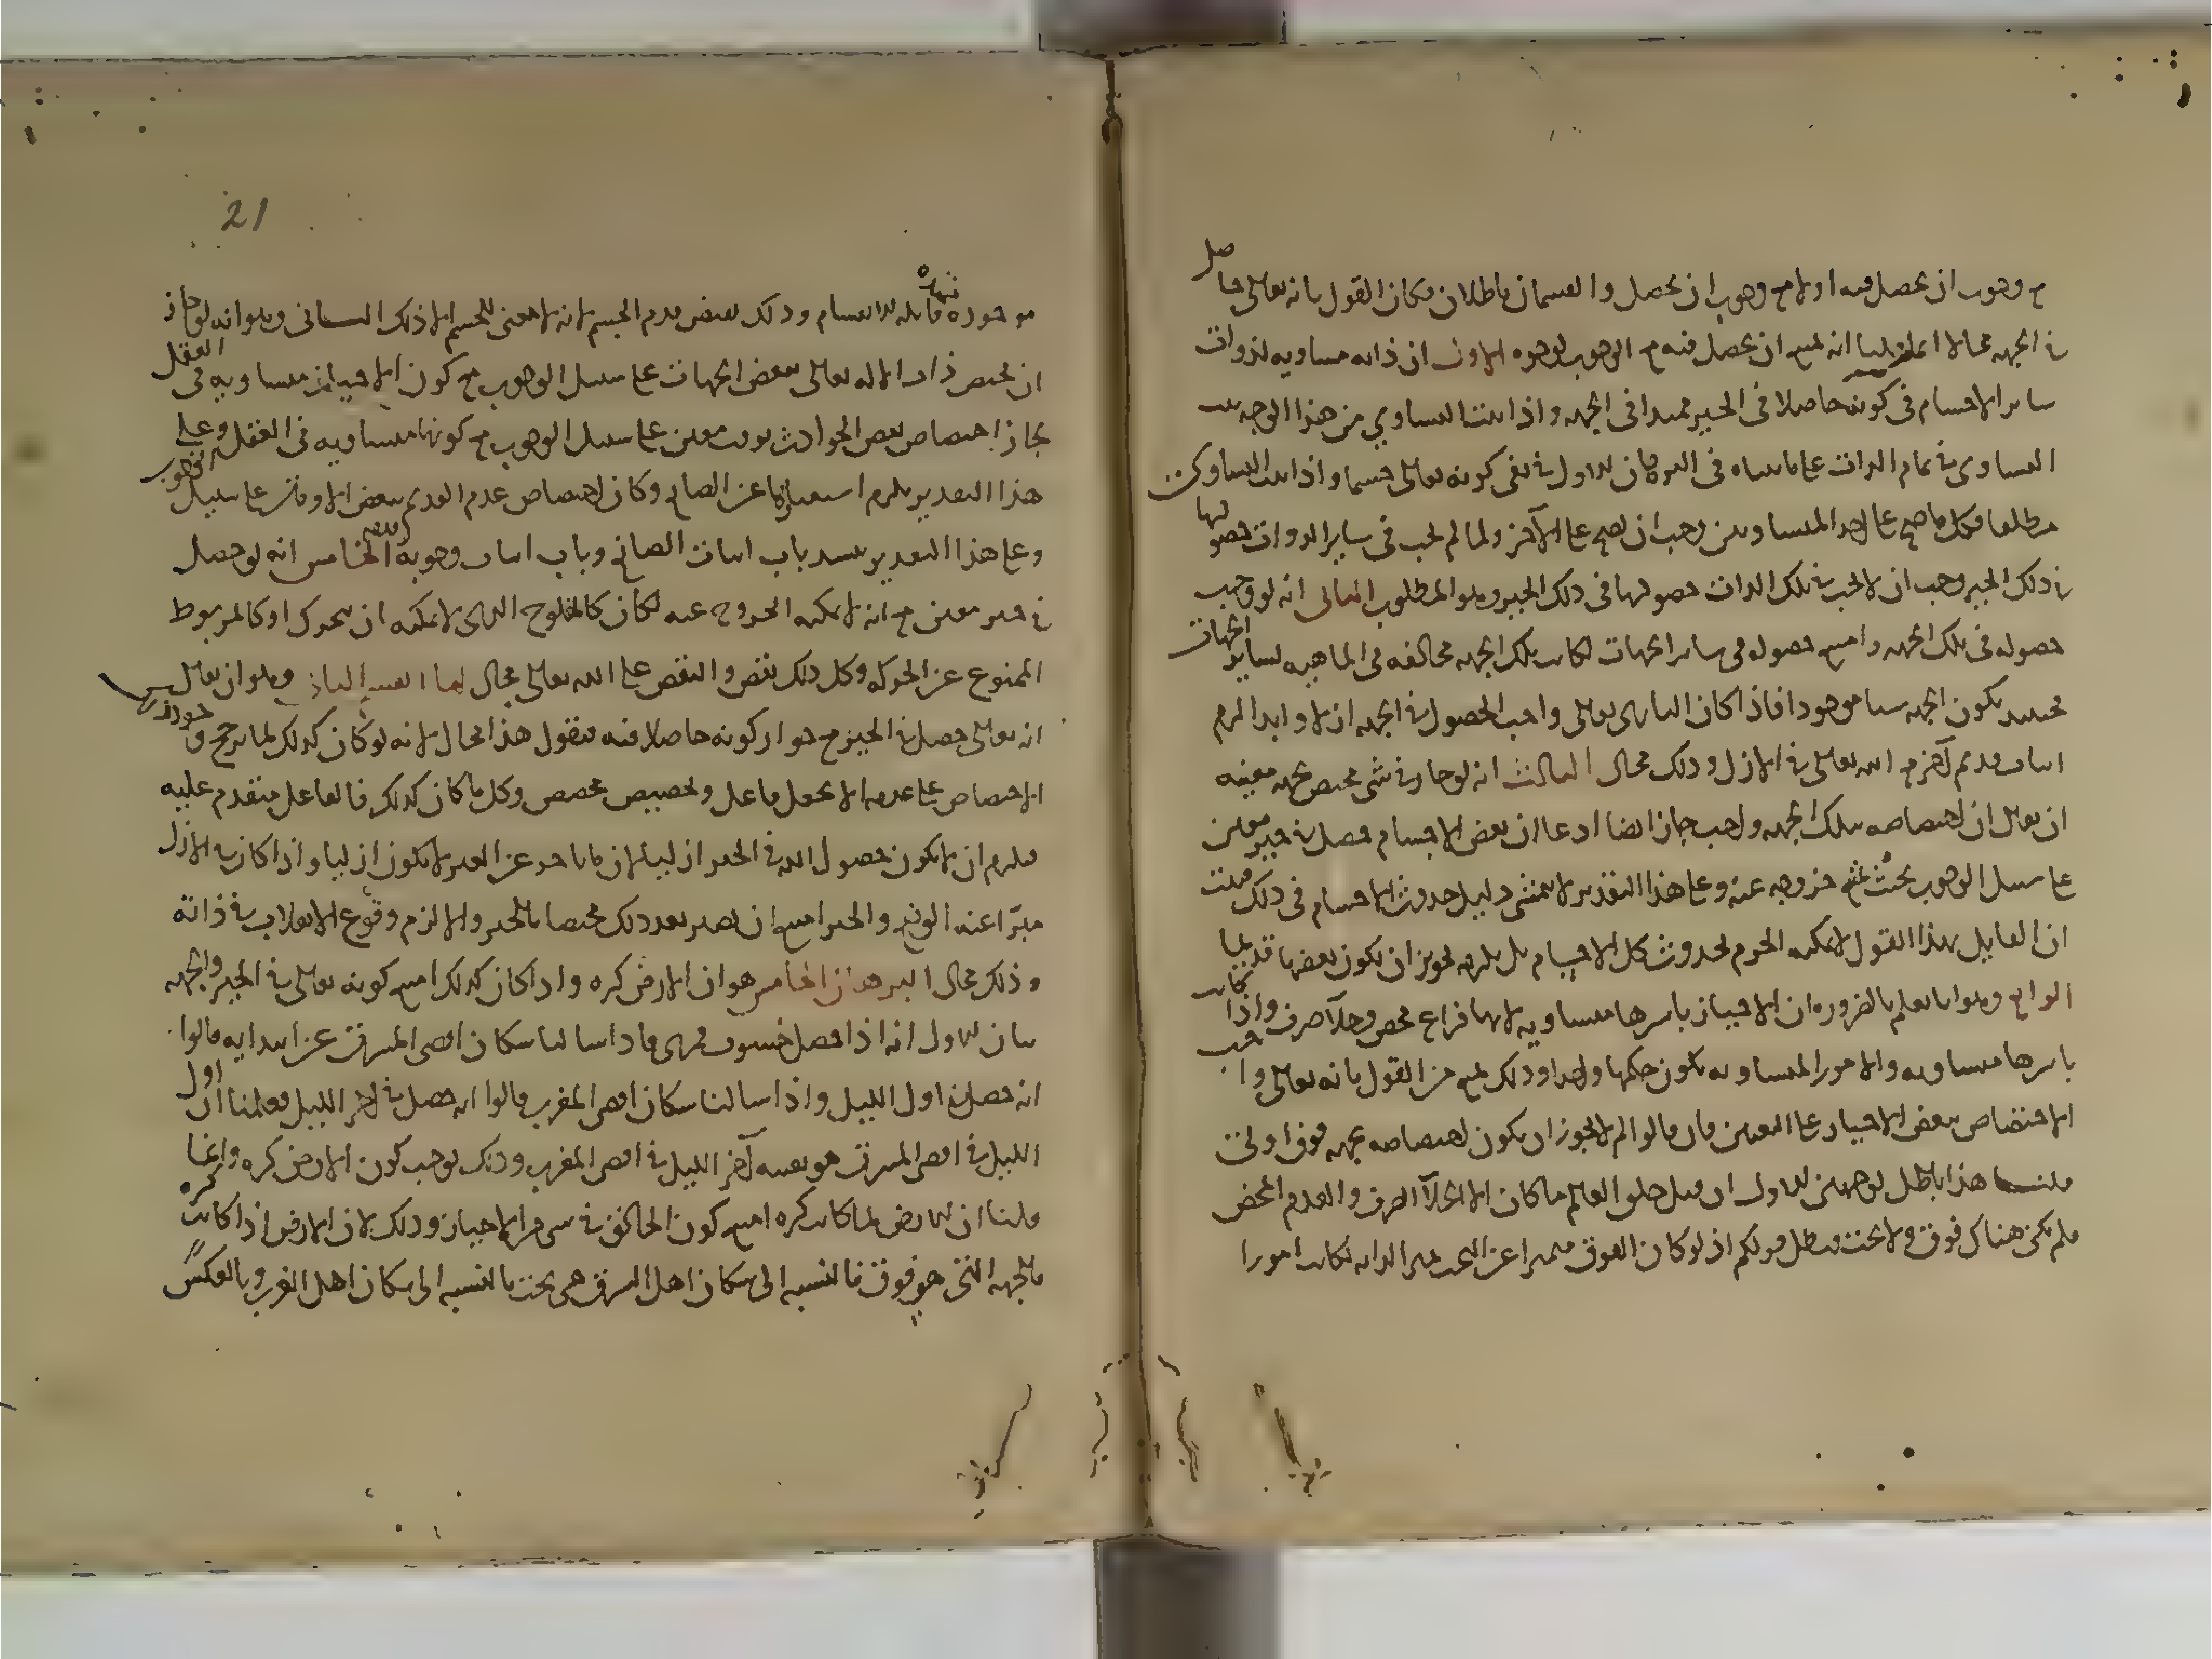 مع وجوب ان يحصل فيه او لا مع وجوب ان يحصل والقسمان باطلان فكان القول بانه تعالى حاصل
في الجهة محالا انما قلنا انه يمتنع ان يحصل فيه مع الوجوب لوجوه الاول ان ذاته مساوية لذوات
ساير الاجسام في كونه حاصلا في الحيز ممتدا في الجهة واذا ثبت التساوي من هذا الوجه ثبت
التساوي في تمام الذات على ما بيناه في البرهان الاول في نفي كونه تعالى جسما واذا ثبت التساوي
مطلقا فكل ما صح على احد المتساويين وجب ان يصح على الآخر ولما لم يجب في ساير الذوات حصولها
في ذلك الحيز وجب ان لا يجب في تلك الذات حصولها في ذلك الحيز وهو المطلوب الثاني انه لو وجب
حصوله في تلك الجهة وامتنع حصوله في ساير الجهات لكانت تلك الجهة مخالفة في الماهية لساير الجهات
فحينئذ تكون الجهة شيا موجودا فاذا كان الباري تعالى واجب الحصول في الجهة ازلا وابدا لزم
اثبات قديم آخر مع الله تعالى في الازل وذلك محال الثالث انه لو جاز في شي مختص بجهة معينة
ان يقال ان اختصاصه بتلك الجهة واجب جاز ايضا ادعا ان بعض الاجسام حصل في حيز معين
على سبيل الوجوب بحيث يمتنع خروجه عنه وعلى هذا التقدير لا يتمشى دليل حدوث الاجسام في ذلك فثبت
ان القايل بهذا القول لا يمكنه الجزم بحدوث كل الاجسام بل يلزمه تجويز ان يكون بعضها قديما
الرابع وهو انا نعلم بالضرورة ان الاحياز باسرها متساوية لانها فراغ محض وخلآ صرف واذا كانت
باسرها متساوية والامور المتساوية يكون حكمها واحدا وذلك يمنع من القول بانه تعالى واجب
الاختصاص ببعض الاحياز على التعيين فان قالوا لم لا يجوز ان يكون اختصاصه بجهة فوق اولى
قلنا هذا باطل لوجهين الاول ان قبل خلق العالم ما كان الا الخلآ الصرف والعدم المحض
فلم يكن هناك فوق ولا تحت فبطل قولكم اذ لو كان الفوق متميزا عن التحت بتميز الذاتي لكانت امورا
21
موجودة قابلة للانقسام وذلك يقتضي قدم الجسم لانه لا معنى للجسم الا ذلك الثاني وهو انه لو جاز
ان يختص ذات الاله تعالى ببعض الجهات على سبيل الوجوب مع كون الاحياز متساوية في العقل
لجاز اختصاص بعض الحوادث بوقت معين على سبيل الوجوب مع كونها متساوية في العقل وعلى
هذا التقدير يلزم استغناؤها عن الصانع وكان اختصاص عدم القديم ببعض الاوقات على سبيل الوجوب
وعلى هذا التقدير ينسد باب اثبات الصانع وباب اثبات وجوبه الخامس انه لو حصل
في حيز معين مع انه لا يمكنه الخروج عنه لكان كالمفلوج الذي لا يمكنه ان يتحرك او كالمربوط
الممنوع عن الحركة وكل ذلك نقص والنقص على الله تعالى محال اما القسم الثاني وهو ان يقال
انه تعالى حصل في الحيز مع جواز كونه حاصلا فيه فنقول هذا محال لانه لو كان كذلك لما ترجح وجود
الاختصاص على عدمه الا بجعل جاعل وتخصيص مخصص وكل ما كان كذلك فالفاعل متقدم عليه
فلزم ان لا يكون حصول الله في الحيز ازليا لان ما تاخر عن الغير لا يكون ازليا واذا كان في الازل
مبرّا عنه الوضع والحيز امتنع ان يصير بعد ذلك مختصا بالحيز والا لزم وقوع الانقلاب في ذاته
وذلك محال البرهان الخامس هو ان الارض كره واذا كان كذلك امتنع كونه تعالى في الحيز والجهة
بيان الاول انه اذا حصل خسوف قمري فاذا سالنا سكان اقصى المشرق عن ابتدايه قالوا
انه حصل في اول الليل واذا سالنا سكان اقصى المغرب قالوا انه حصل في آخر الليل فعلمنا ان اول
الليل في اقصى المشرق هو بعينه آخر الليل في اقصى المغرب وذلك يوجب كون الارض كره وانما
قلنا ان الارض لما كانت كره امتنع كون الخالق في شي من الاحياز وذلك لان الارض اذا كانت كره
فالجهة التي هي فوق بالنسبة الى سكان اهل الشرق هي تحت بالنسبة الى سكان اهل الغرب وبالعكس